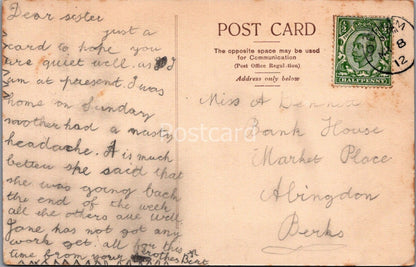 Dear sister
just a
card to hope you
are quiet well. as I
am at present. I was
home on Sunday
mother had a nasty
headache. A is much
better she said that
she was going back
the end of the week
all the others are well
Jane has not got any
work yet. all for this
time from your brother Bert
POST CARD
The opposite space may be used
for Communication
(Post Office Regulation)
Address only below
HALFPENNY
8
12
Miss A Dennea
Bank House
Market Place
Abingdon
Berks
Postcard